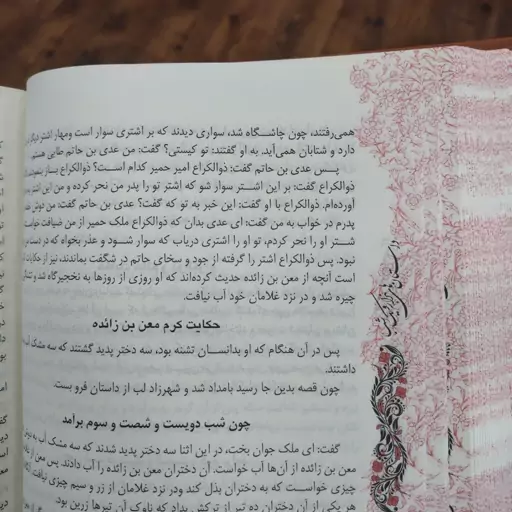 همی‌رفتند، چون چاشگاه شد، سواری دیدند که بر اشتری سوار است ومهار اشتر دیگر
دارد و شتابان همی‌آید. به او گفتند: تو کیستی؟ گفت: من عدی بن حاتم طایی هستم.
پس عدی بن حاتم گفت: ذوالکراع امیر حمیر کدام است؟ ذوالکراع
ذوالکراع گفت: بر این اشتر سوار شو که اشتر تو را پدر من نحر کرده و من این اشتر
آورده‌ام. ذوالکراع با او گفت: این خبر به تو که گفت؟ عدی بن حاتم گفت: من دوش
پدرم در خواب به من گفت: ای عدی بدان که ذوالکراع ملک حمیر از من ضیافت خواست
شتر او را نحر کردم، تو او را اشتری دریاب که سوار شود و عذر بخواه که در دست من
نبود. پس ذوالکراع اشتر را گرفته از جود و سخای حاتم در شگفت بماندند، نیز از حکایات
است آنچه از معن بن زائده حدیث کرده‌اند که او روزی از روزها به نخجیرگاه شد و
چیره شد و در نزد غلامان خود آب نیافت.
حکایت کرم معن بن زائده
پس در آن هنگام که او بدانسان تشنه بود، سه دختر پدید گشتند که سه مشک آب
داشتند.
چون قصه بدین جا رسید بامداد شد و شهرزاد لب از داستان فرو بست.
چون شب دویست و شصت و سوم برآمد
گفت: ای ملک جوان بخت، در این اثنا سه دختر پدید شدند که سه مشک آب به دوش
معن بن زائده از آن‌ها آب خواست. آن دختران معن بن زائده را آب دادند. پس معن از
چیزی خواست که به دختران بذل کند ودر نزد غلامان از زر و سیم چیزی نیافت
هر یکی از آن دختران ده تیر از ترکش بداد که ناوک آن تیرها زرین بود.